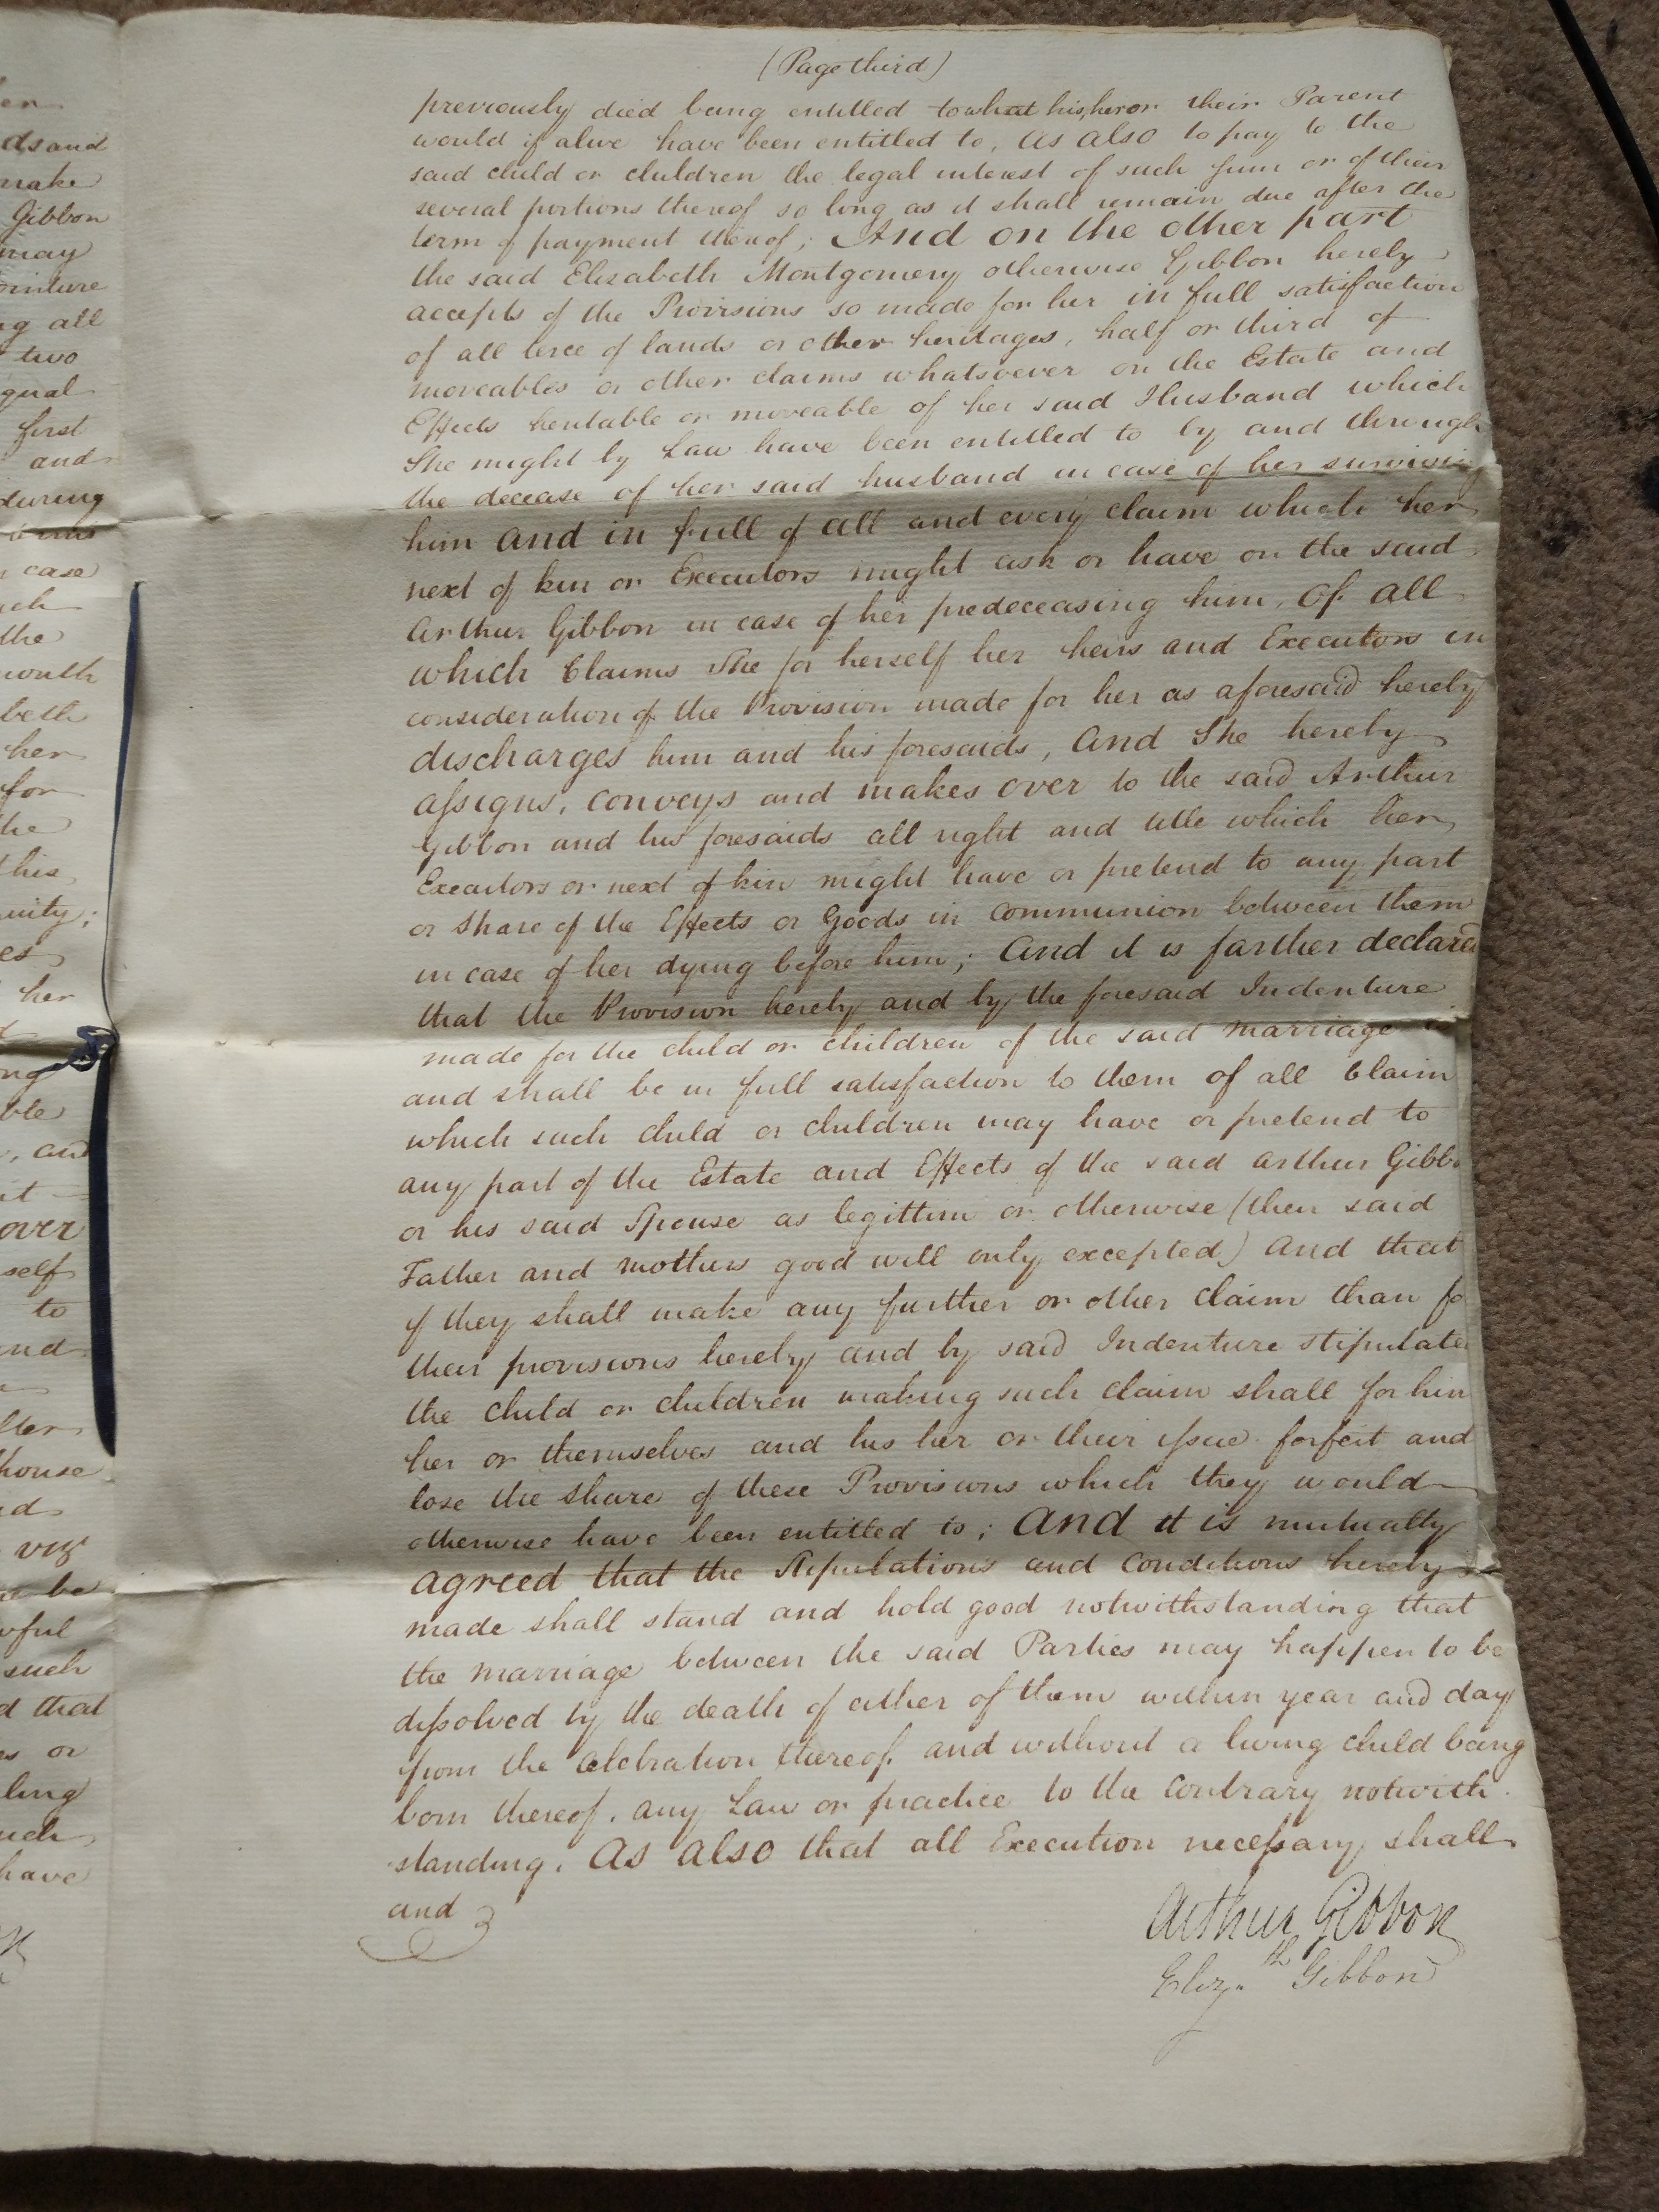 en
ds and
make
Gibbon
may
ointure
ng all
two
qual
first
and
during
case
ach
the
month
beth
her
for
the
this
uity;
es
her
ong
ble
, and
it
over
self
to
and
fter
house
nd
viz
be
wful
such
d that
es or
ling
uch
have
(Page third)
previously died being entitled to what his, her or their Parent
would if alive have been entitled to, as also to pay to the
said child or children the legal interest of such sum or of their
several portions thereof so long as it shall remain due after the
term of payment thereof; And on the other part
the said Elizabeth Montgomery otherwise Gibbon hereby
accepts of the Provisions so made for her in full satisfaction
of all terce of lands or other heritages, half or third of
moveables or other claims whatsoever on the Estate and
Effects heritable or moveable of her said Husband which
She might by Law have been entitled to by and through
the decease of her said husband in case of her surviving
him and in full of all and every claim which her
next of kin or Executors might ask or have on the said
Arthur Gibbon in case of her predeceasing him, Of all
which Claims She for herself her heirs and Executors in
consideration of the Provision made for her as aforesaid hereby
discharges him and his foresaids, And She hereby
assigns, conveys and makes over to the said Arthur
Gibbon and his foresaids all right and title which her
Executors or next of kin might have or pretend to any part
or share of the Effects or Goods in communion between them
in case of her dying before him; And it is farther declared
that the Provision hereby and by the foresaid Indenture
made for the child or children of the said marriage
and shall be in full satisfaction to them of all Claim
which such child or children may have or pretend to
any part of the Estate and Effects of the said Arthur Gibbo
or his said Spouse as legittim or otherwise (their said
Father and mothers good will only excepted) And that
if they shall make any further or other claim than fo
their provisions hereby and by said Indenture stipulated
the child or children making such claim shall for him
her or themselves and his her or their issue forfeit and
lose the share of these Provisions which they would
otherwise have been entitled to; And it is mutually
agreed that the Stipulations and Conditions hereby
made shall stand and hold good notwithstanding that
the marriage between the said Parties may happen to be
dissolved by the death of either of them within year and day
from the celebration thereof and without a living child being
born thereof, any Law or practice to the contrary notwith
standing. As also that all Execution necessary shall
and
Arthur Gibbon
Eliz.th Gibbon